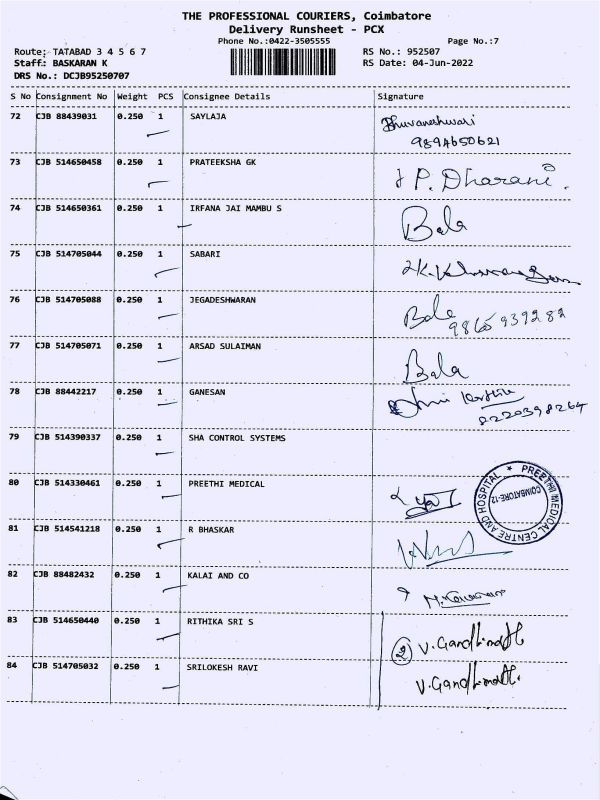 THE PROFESSIONAL COURIERS, Coimbatore
Delivery Runsheet - PCX
Phone No.:0422-3505555
Page No.:7
Route: TATABAD 3 4 5 6 7
RS No.: 952507
Staff: BASKARAN K
RS Date: 04-Jun-2022
DRS No.: DCJB95250707
S No Consignment No Weight PCS Consignee Details Signature
72 CJB 88439031 0.250 1 SAYLAJA Bhuvaneshwari
9894650621
73 CJB 514650458 0.250 1 PRATEEKSHA GK P. Dharani.
74 CJB 514650361 0.250 1 IRFANA JAI MAMBU S Bala
75 CJB 514705044 0.250 1 SABARI
76 CJB 514705088 0.250 1 JEGADESHWARAN Bala
9865939282
77 CJB 514705071 0.250 1 ARSAD SULAIMAN Bala
78 CJB 88442217 0.250 1 GANESAN
8220398264
79 CJB 514390337 0.250 1 SHA CONTROL SYSTEMS
80 CJB 514330461 0.250 1 PREETHI MEDICAL
PREETHI MEDICAL CENTRE AND HOSPITAL
COIMBATORE-12
81 CJB 514541218 0.250 1 R BHASKAR
82 CJB 88482432 0.250 1 KALAI AND CO
83 CJB 514650440 0.250 1 RITHIKA SRI S 2 V. Gandhimathi
84 CJB 514705032 0.250 1 SRILOKESH RAVI V. Gandhimathi.